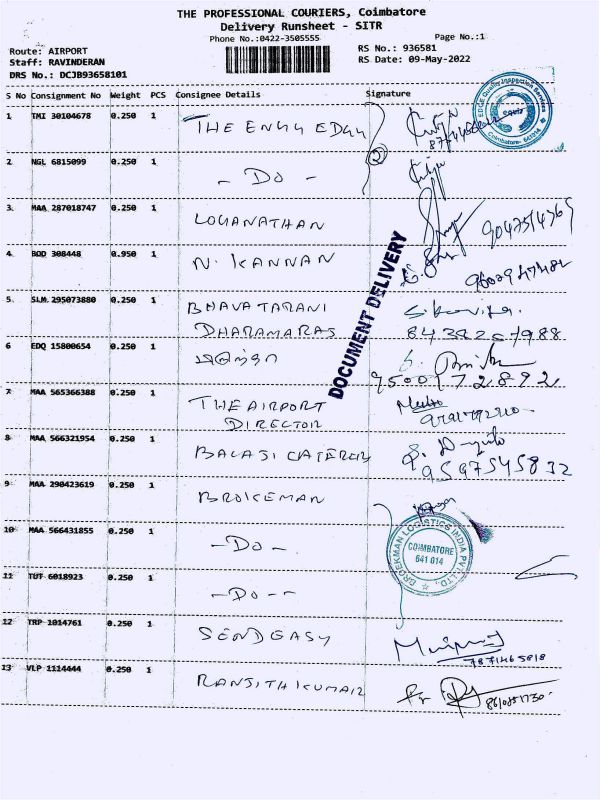 THE PROFESSIONAL COURIERS, Coimbatore
Delivery Runsheet - SITR
Phone No.:0422-3505555 Page No.:1
Route: AIRPORT RS No.: 936581
Staff: RAVINDERAN RS Date: 09-May-2022
DRS No.: DCJB93658101
S No Consignment No Weight PCS Consignee Details Signature
1 TMI 30104678 0.250 1 THE ENGG EDGG
2. NGL 6815099 0.250 1 - DO -
3. MAA 287018747 0.250 1 LOGANATHAN 9047514369
4. BOD 308448 0.950 1 N. KANNAN
5. SLM 295073880 0.250 1 BHAVATARANI
DHARAMARAS
6 EDQ 15800654 0.250 1
9500172892
7. MAA 565366388 0.250 1 THE AIRPORT
DIRECTOR
8 MAA 566321954 0.250 1 BALAJI CATERERS
9597545832
9 MAA 290423619 0.250 1 BROKEMAN
10 MAA 566431855 0.250 1 - DO -
11 TUT 6018923 0.250 1 - DO - -
12 TRP 1014761 0.250 1 SENDEASY
13 VLP 1114444 0.250 1 RANJITH KUMAR
DOCUMENT DELIVERY
EDGE Quality Inspection Services
Coimbatore- 641 014
BROEKMAN LOGISTICS INDIA PVT. LTD.,
COIMBATORE
641 014